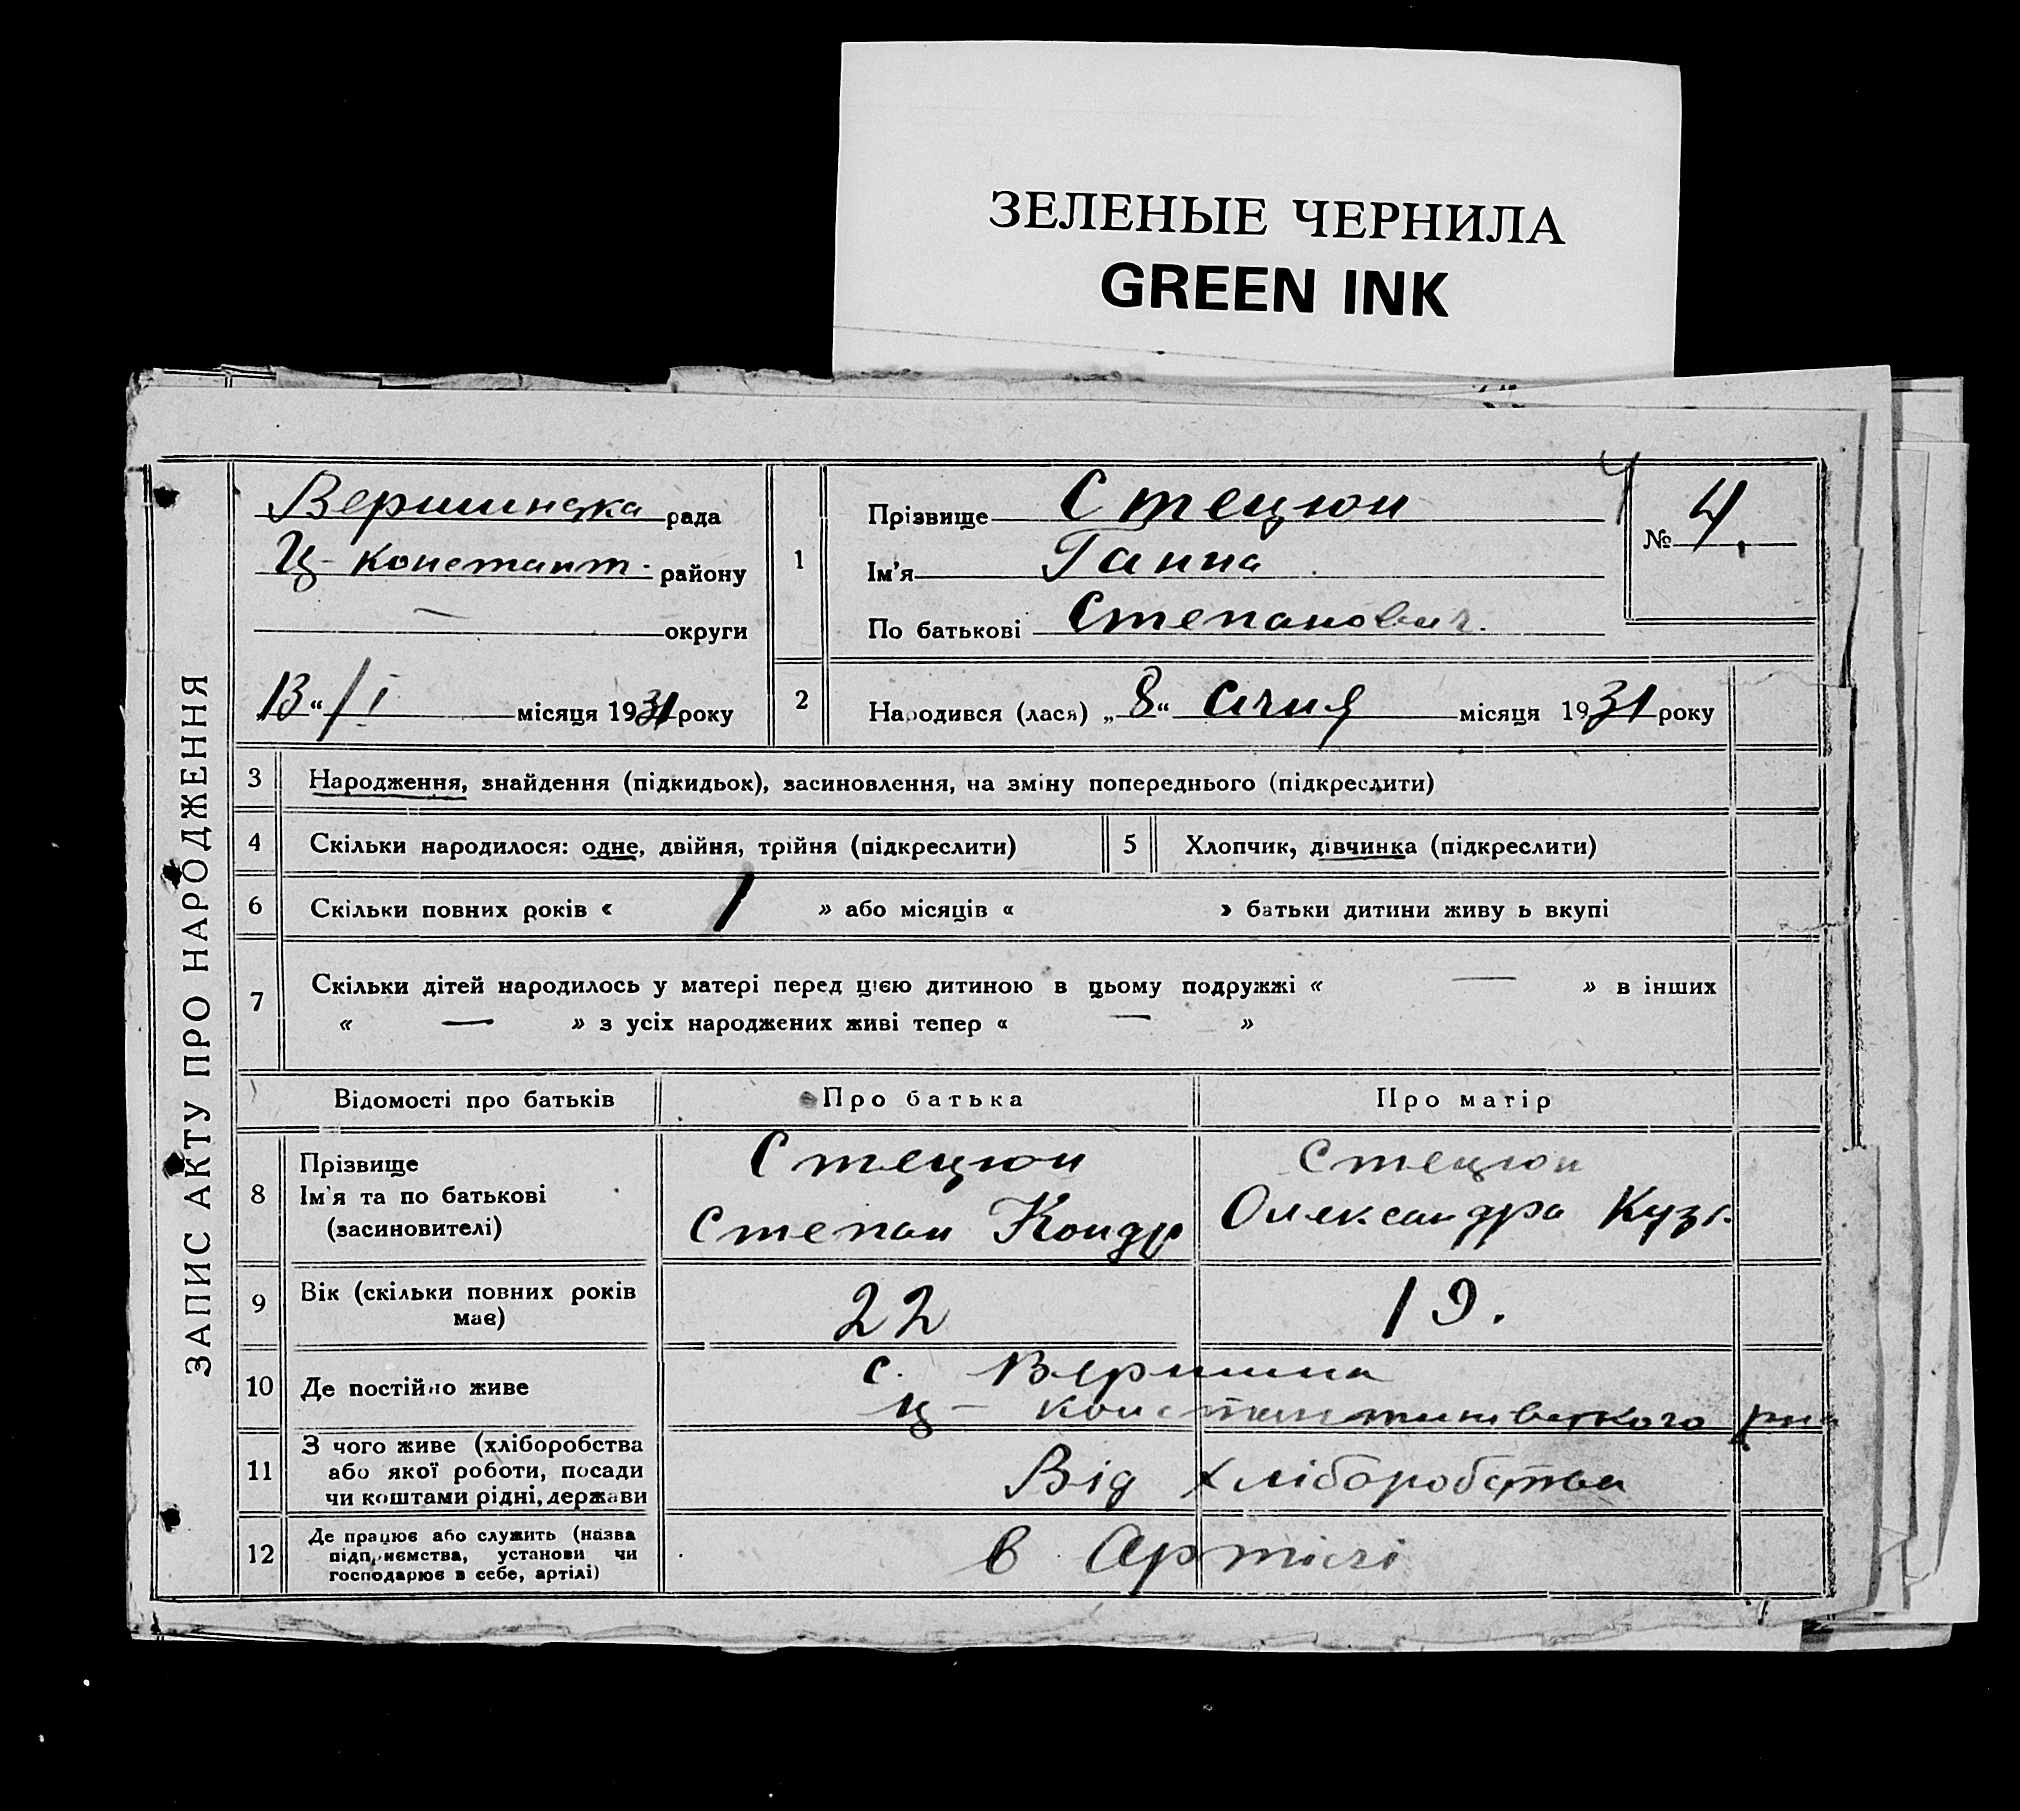 ЗЕЛЕНЫЕ ЧЕРНИЛА
GREEN INK
ЗАПИС АКТУ ПРО НАРОДЖЕННЯ
Вершинська рада
Ц-Констант. району
— округи
13 “ / I місяця 1931 року
1
Прізвище Стецюн
Ім'я Ганна
По батькові Степанович.
№ 4
2
Народився (лася) „ 8 “ січня місяця 1931 року
3 Народження, знайдення (підкидьок), засиновлення, на зміну попереднього (підкреслити)
4 Скільки народилося: одне, двійня, трійня (підкреслити)
5 Хлопчик, дівчинка (підкреслити)
6 Скільки повних років « 1 » або місяців « » батьки дитини живу ь вкупі
7 Скільки дітей народилось у матері перед цією дитиною в цьому подружжі « — » в інших
« — » з усіх народжених живі тепер « — »
Відомості про батьків
Про батька
Про матір
8 Прізвище
Ім'я та по батькові
(засиновителі)
Стецюн
Степан Кондр
Стецюн
Олександра Кузь.
9 Вік (скільки повних років
має)
22
19.
10 Де постійно живе
с. Вершина
Ц- Константинівського рна
11 З чого живе (хліборобства
або якої роботи, посади
чи коштами рідні, держави
Від хліборобства
12 Де працює або служить (назва
підприємства, установи чи
господарює в себе, артілі)
в Артілі